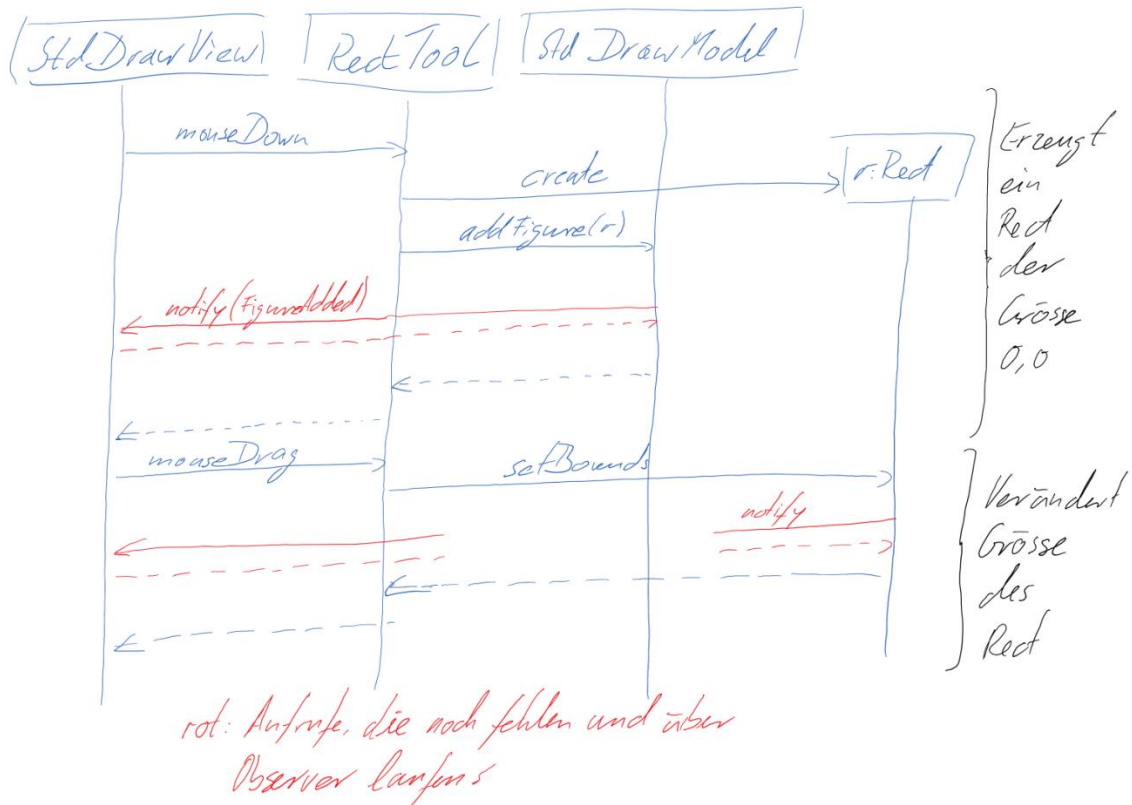 StdDrawView
RectTool
StdDrawModel
mouseDown
create
r:Rect
addFigure(r)
notify(FigureAdded)
mouseDrag
setBounds
notify
Erzeugt
ein
Rect
der
Grösse
0,0
Verändert
Grösse
des
Rect
rot: Aufrufe, die noch fehlen und über
Observer laufen